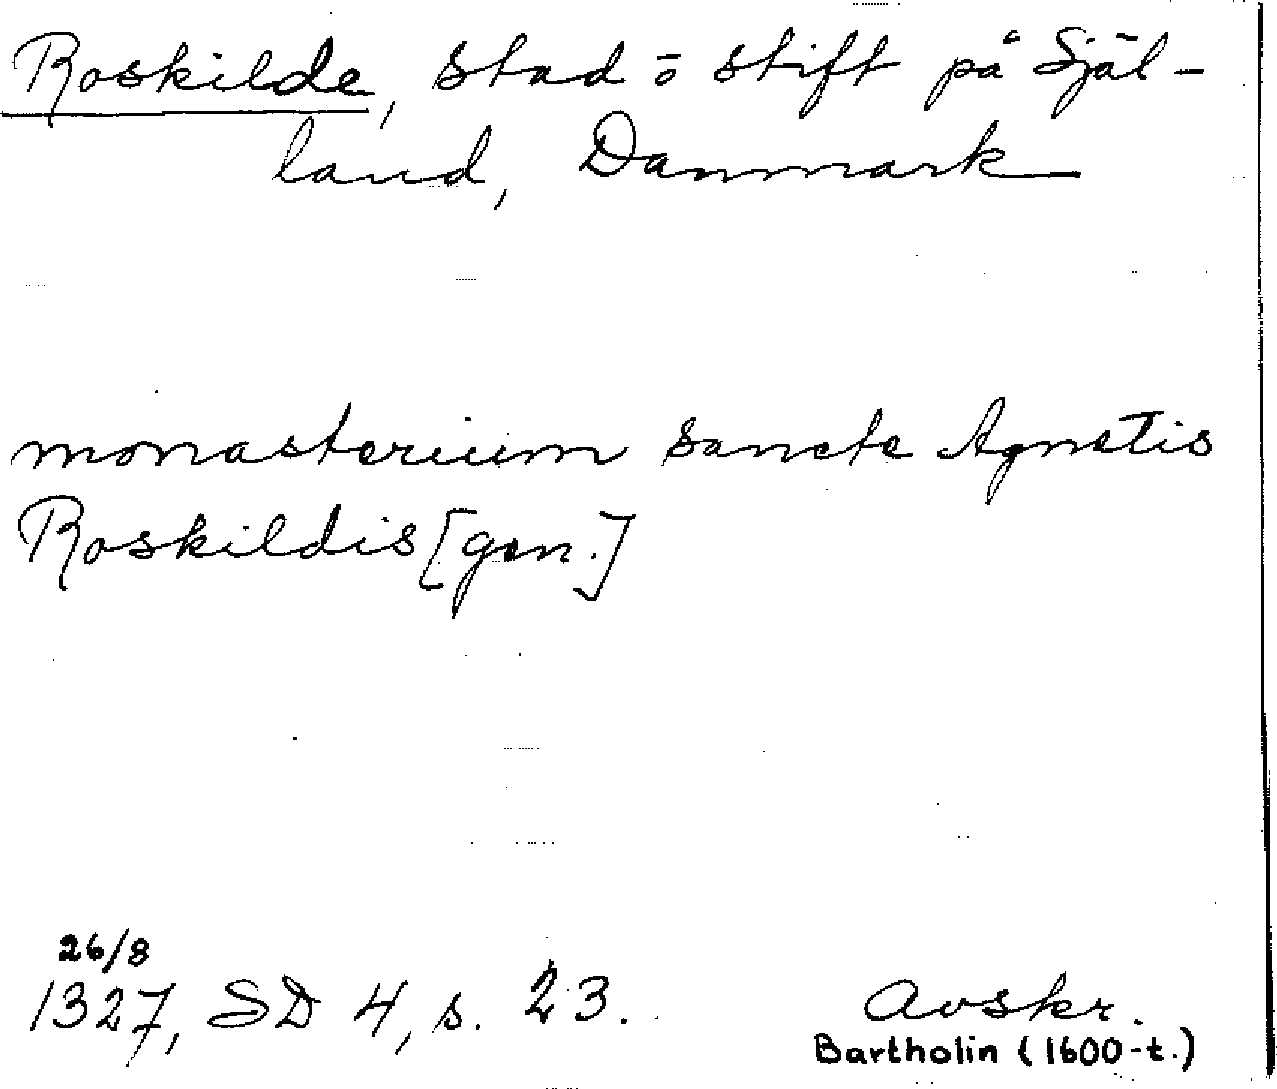 Roskilde, stad o stift på Själ-
land, Danmark
monasterium sancte Agnetis
Roskildis [gen.]
26/8
1327, SD 4, s. 23.
Avskr.
Bartholin (1600-t.)